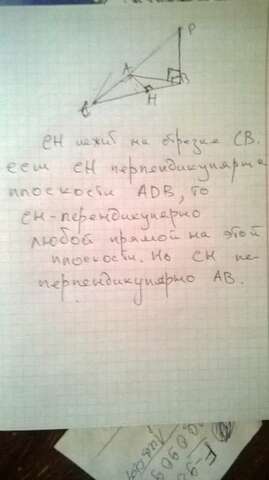 D
A
C
H
B
CH лежит на отрезке CB.
если CH перпендикулярна
плоскости ADB, то
CH-перендикулярно
любой прямой на этой
плоскости. Но CH не
перпендикулярно AB.